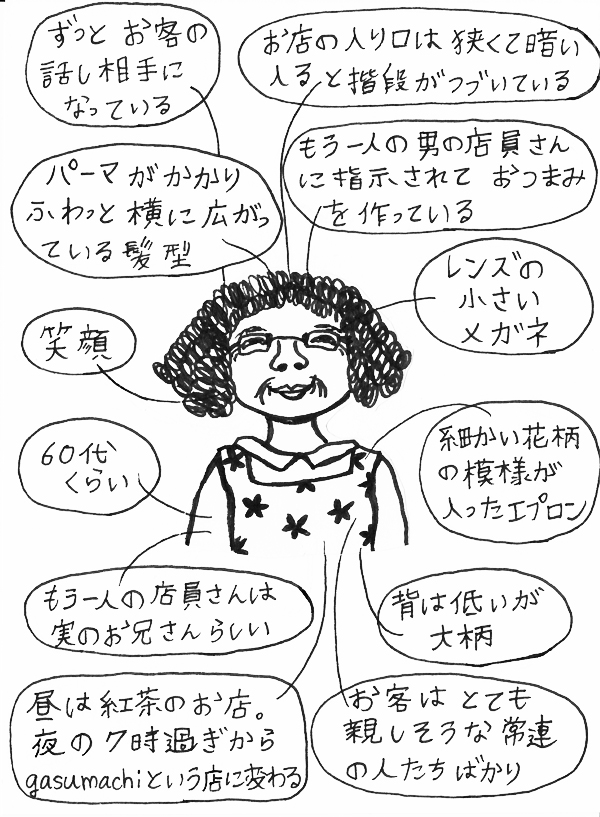 ずっと お客の
話し相手に
なっている
お店の入り口は 狭くて暗い
入ると階段がつづいている
パーマがかかり
ふわっと 横に広がっ
ている 髪型
もう一人の 男の店員さん
に指示されて おつまみ
を作っている
レンズの
小さい
メガネ
笑顔
60代
くらい
細かい花柄
の模様が
入ったエプロン
もう一人の店員さんは
実のお兄さんらしい
背は低いが
大柄
昼は紅茶のお店。
夜の7時過ぎから
gasumachiという店に変わる
お客は とても
親しそうな 常連
の人たちばかり